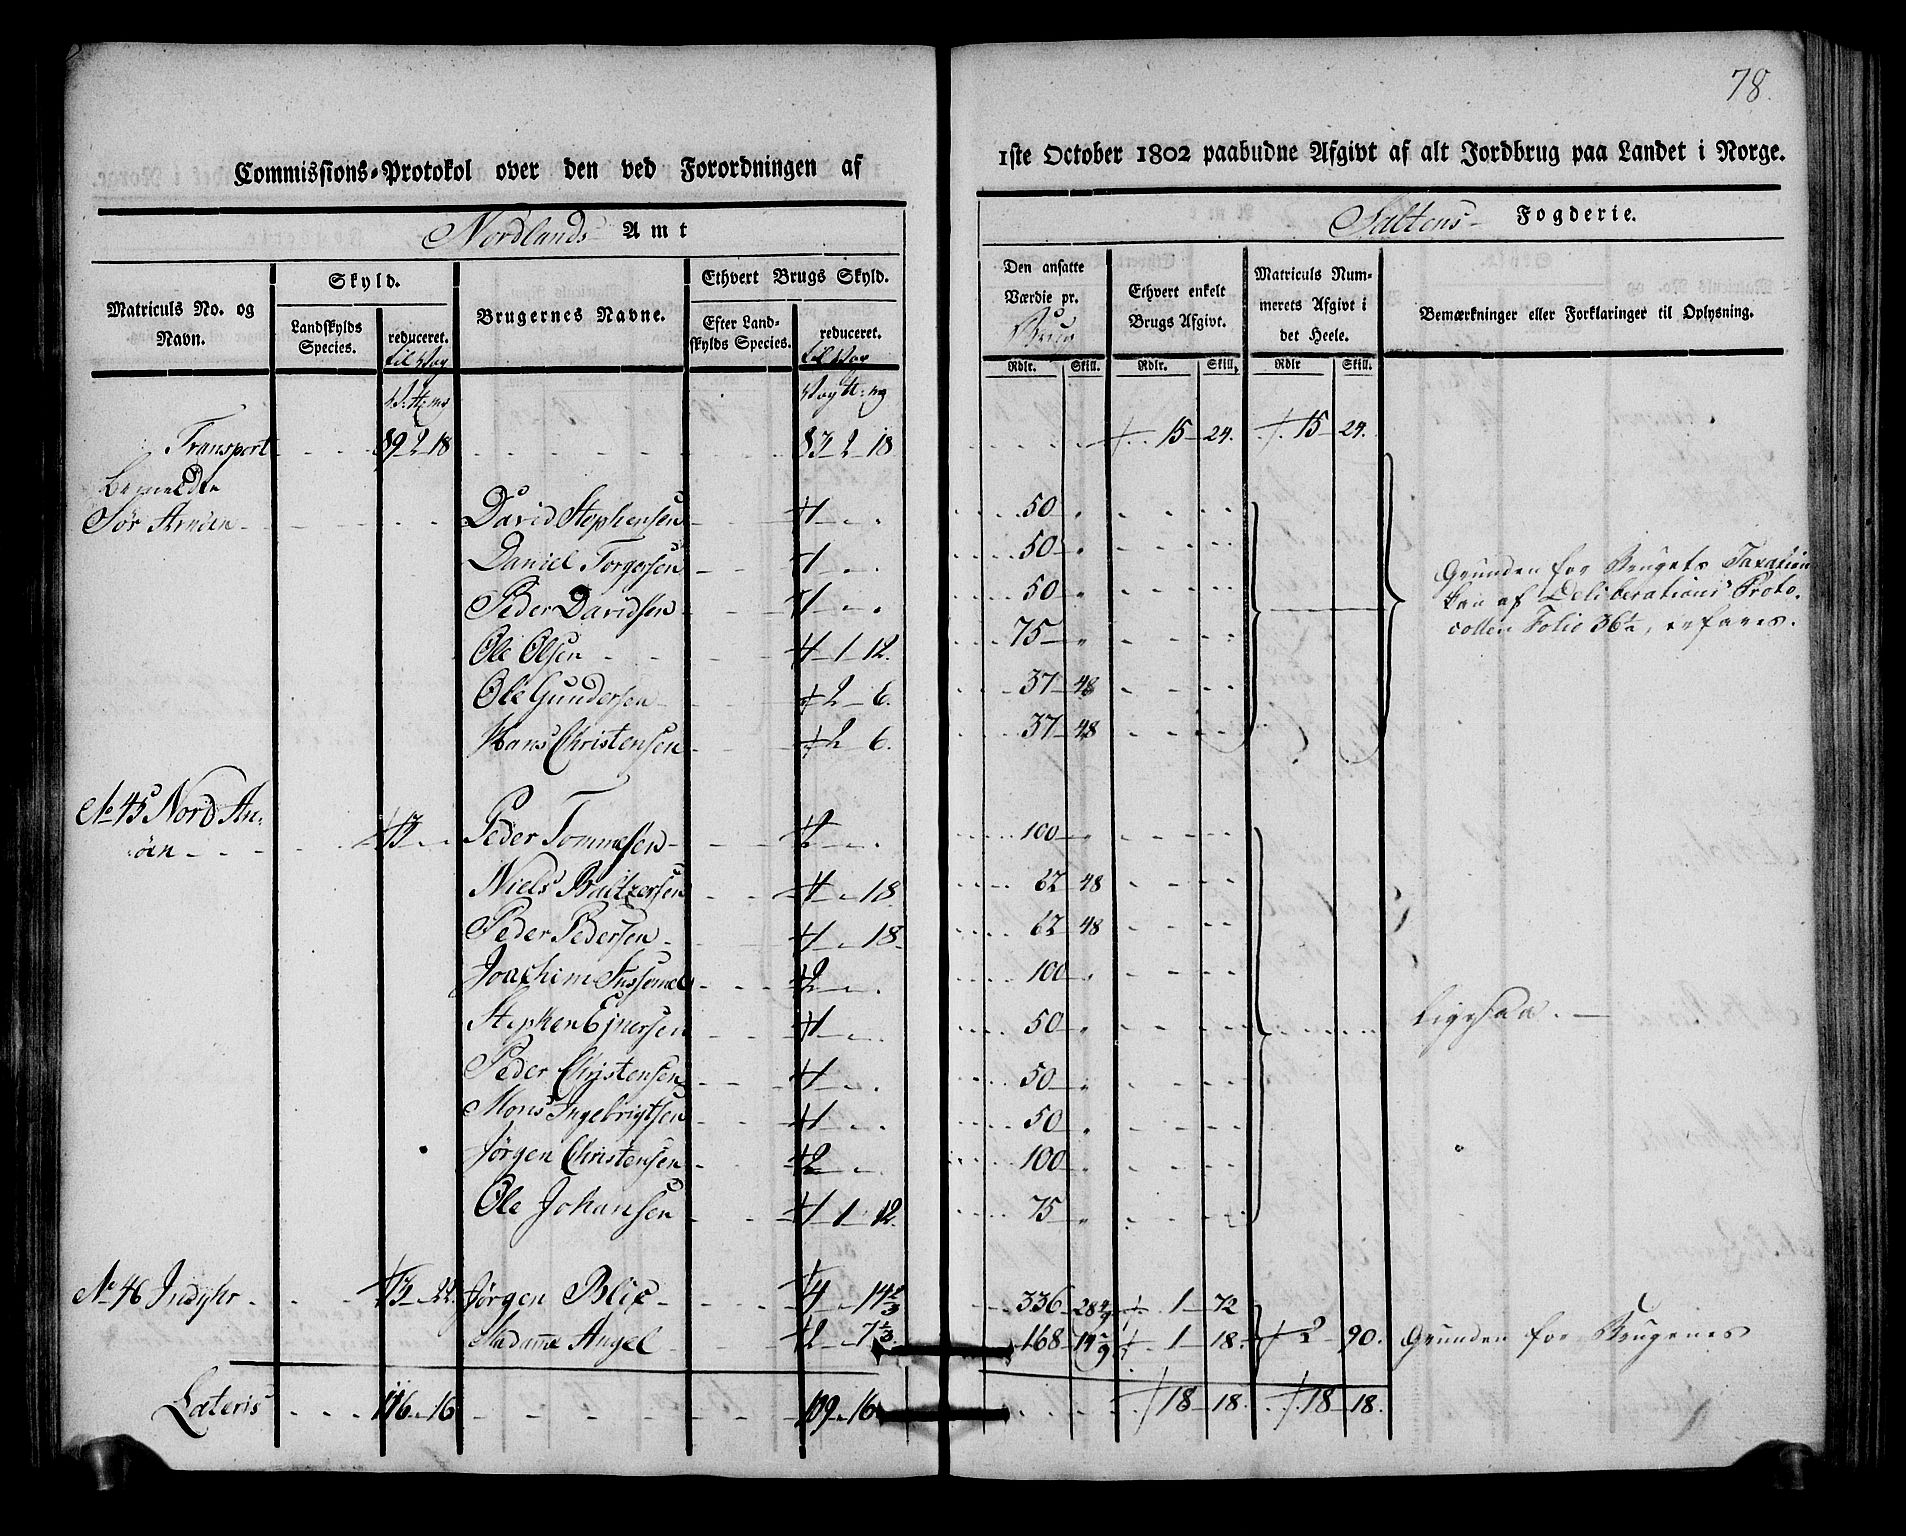 78.
Commissions-Protokol over den ved Forordningen af 1ste October 1802 paabudne Afgivt af alt Jordbrug paa Landet i Norge.
Nordlands Amt
Saltens Fogderie.
Matriculs No. og Navn.
Skyld.
Landskylds Species.
reduceret. til Vog
Brugernes Navne.
Ethvert Brugs Skyld.
Efter Landskylds Species.
reduceret. til Vog
Den ansatte Værdie pr. Brug
Rdlr. Skill.
Ethvert enkelt Brugs Afgivt.
Rdlr. Skill.
Matriculs Nummerets Afgivt i det Heele.
Rdlr Skill.
Bemærkninger eller Forklaringer til Oplysning.
Transport 89 2 18 83 2 18 15 24. 15 24.
bemeldte
Sør Arnøen David Stephensen 1 50
Daniel Torgersen 1 50
Peder Davidsen 1 50
Ole Olsen 1 1 12. 75
Ole Gundersen 2 6. 37 48
Hans Christensen 2 6. 37 48
Grunden for Brugets Taxation
kan af Deliberations Proto-
collen Folio 36½, erfares.
No 45 Nord Ar-
øen 13 Peder Tommesen 2 100
Niels Baltzersen 1 18 62 48
Peder Pedersen 1 18 62 48
Joachim 2 100
Stephen Ejnersen 1 50 Ligesaa.
Peder Christensen 1 50
Mons Ingebrigtsen 1 50
Jørgen Christensen 2 100
Ole Johansen 1 1 12 75
No 46 Indyhr 13 22 Jørgen Blix 4 14 2/3 336 28 4/9 1 72
Madame Angel 2 7 1/3 168 14 2/9 1 18. 2 90. Grunden for Brugenes
Lateris 116 16 109 16 18 18. 18 18.